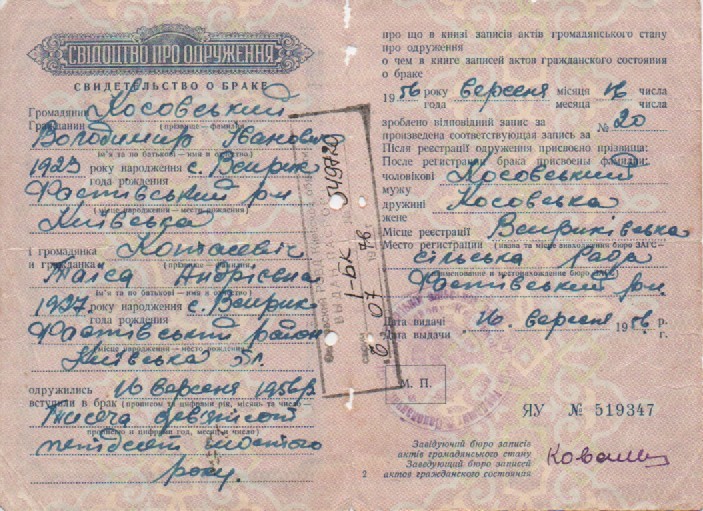 СВІДОЦТВО ПРО ОДРУЖЕННЯ
СВИДЕТЕЛЬСТВО О БРАКЕ
Громадянин Косовський
Гражданин (прізвище — фамилия)
Володимир Іванович
(ім'я та по батькові — имя и отчество)
1923 року народження с. Веприк
года рождения
Фастівський р-н
Київська
(місце народження — место рождения)
і громадянка
и гражданка
Таїса Андріївна
(ім'я та по батькові — имя и отчество)
1937 року народження с. Веприк
года рождения
Фастівський район
Київська
(місце народження — место рождения)
одружились 16 вересня 1956 р.
вступили в брак
Тисяча девятсот
пятдесят шостого
року.
про що в книзі записів актів громадянського стану
про одруження
о чем в книге записей актов гражданского состояния
о браке
1956 року вересня місяця 16 числа
года месяца числа
зроблено відповідний запис за № 20
произведена соответствующая запись за
Після реєстрації одруження присвоєно прізвища:
После регистрации брака присвоены фамилии:
чоловікові Косовський
мужу
дружині Косовська
жене
Місце реєстрації Веприківська
Место регистрации
сільська рада
Фастівський р-н
Дата видачі 16 вересня 1956 р.
Дата выдачи г.
М. П.
ЯУ № 519347
Завідуючий бюро записів
актів громадянського стану
Заведующий бюро записей
актов гражданского состояния
2